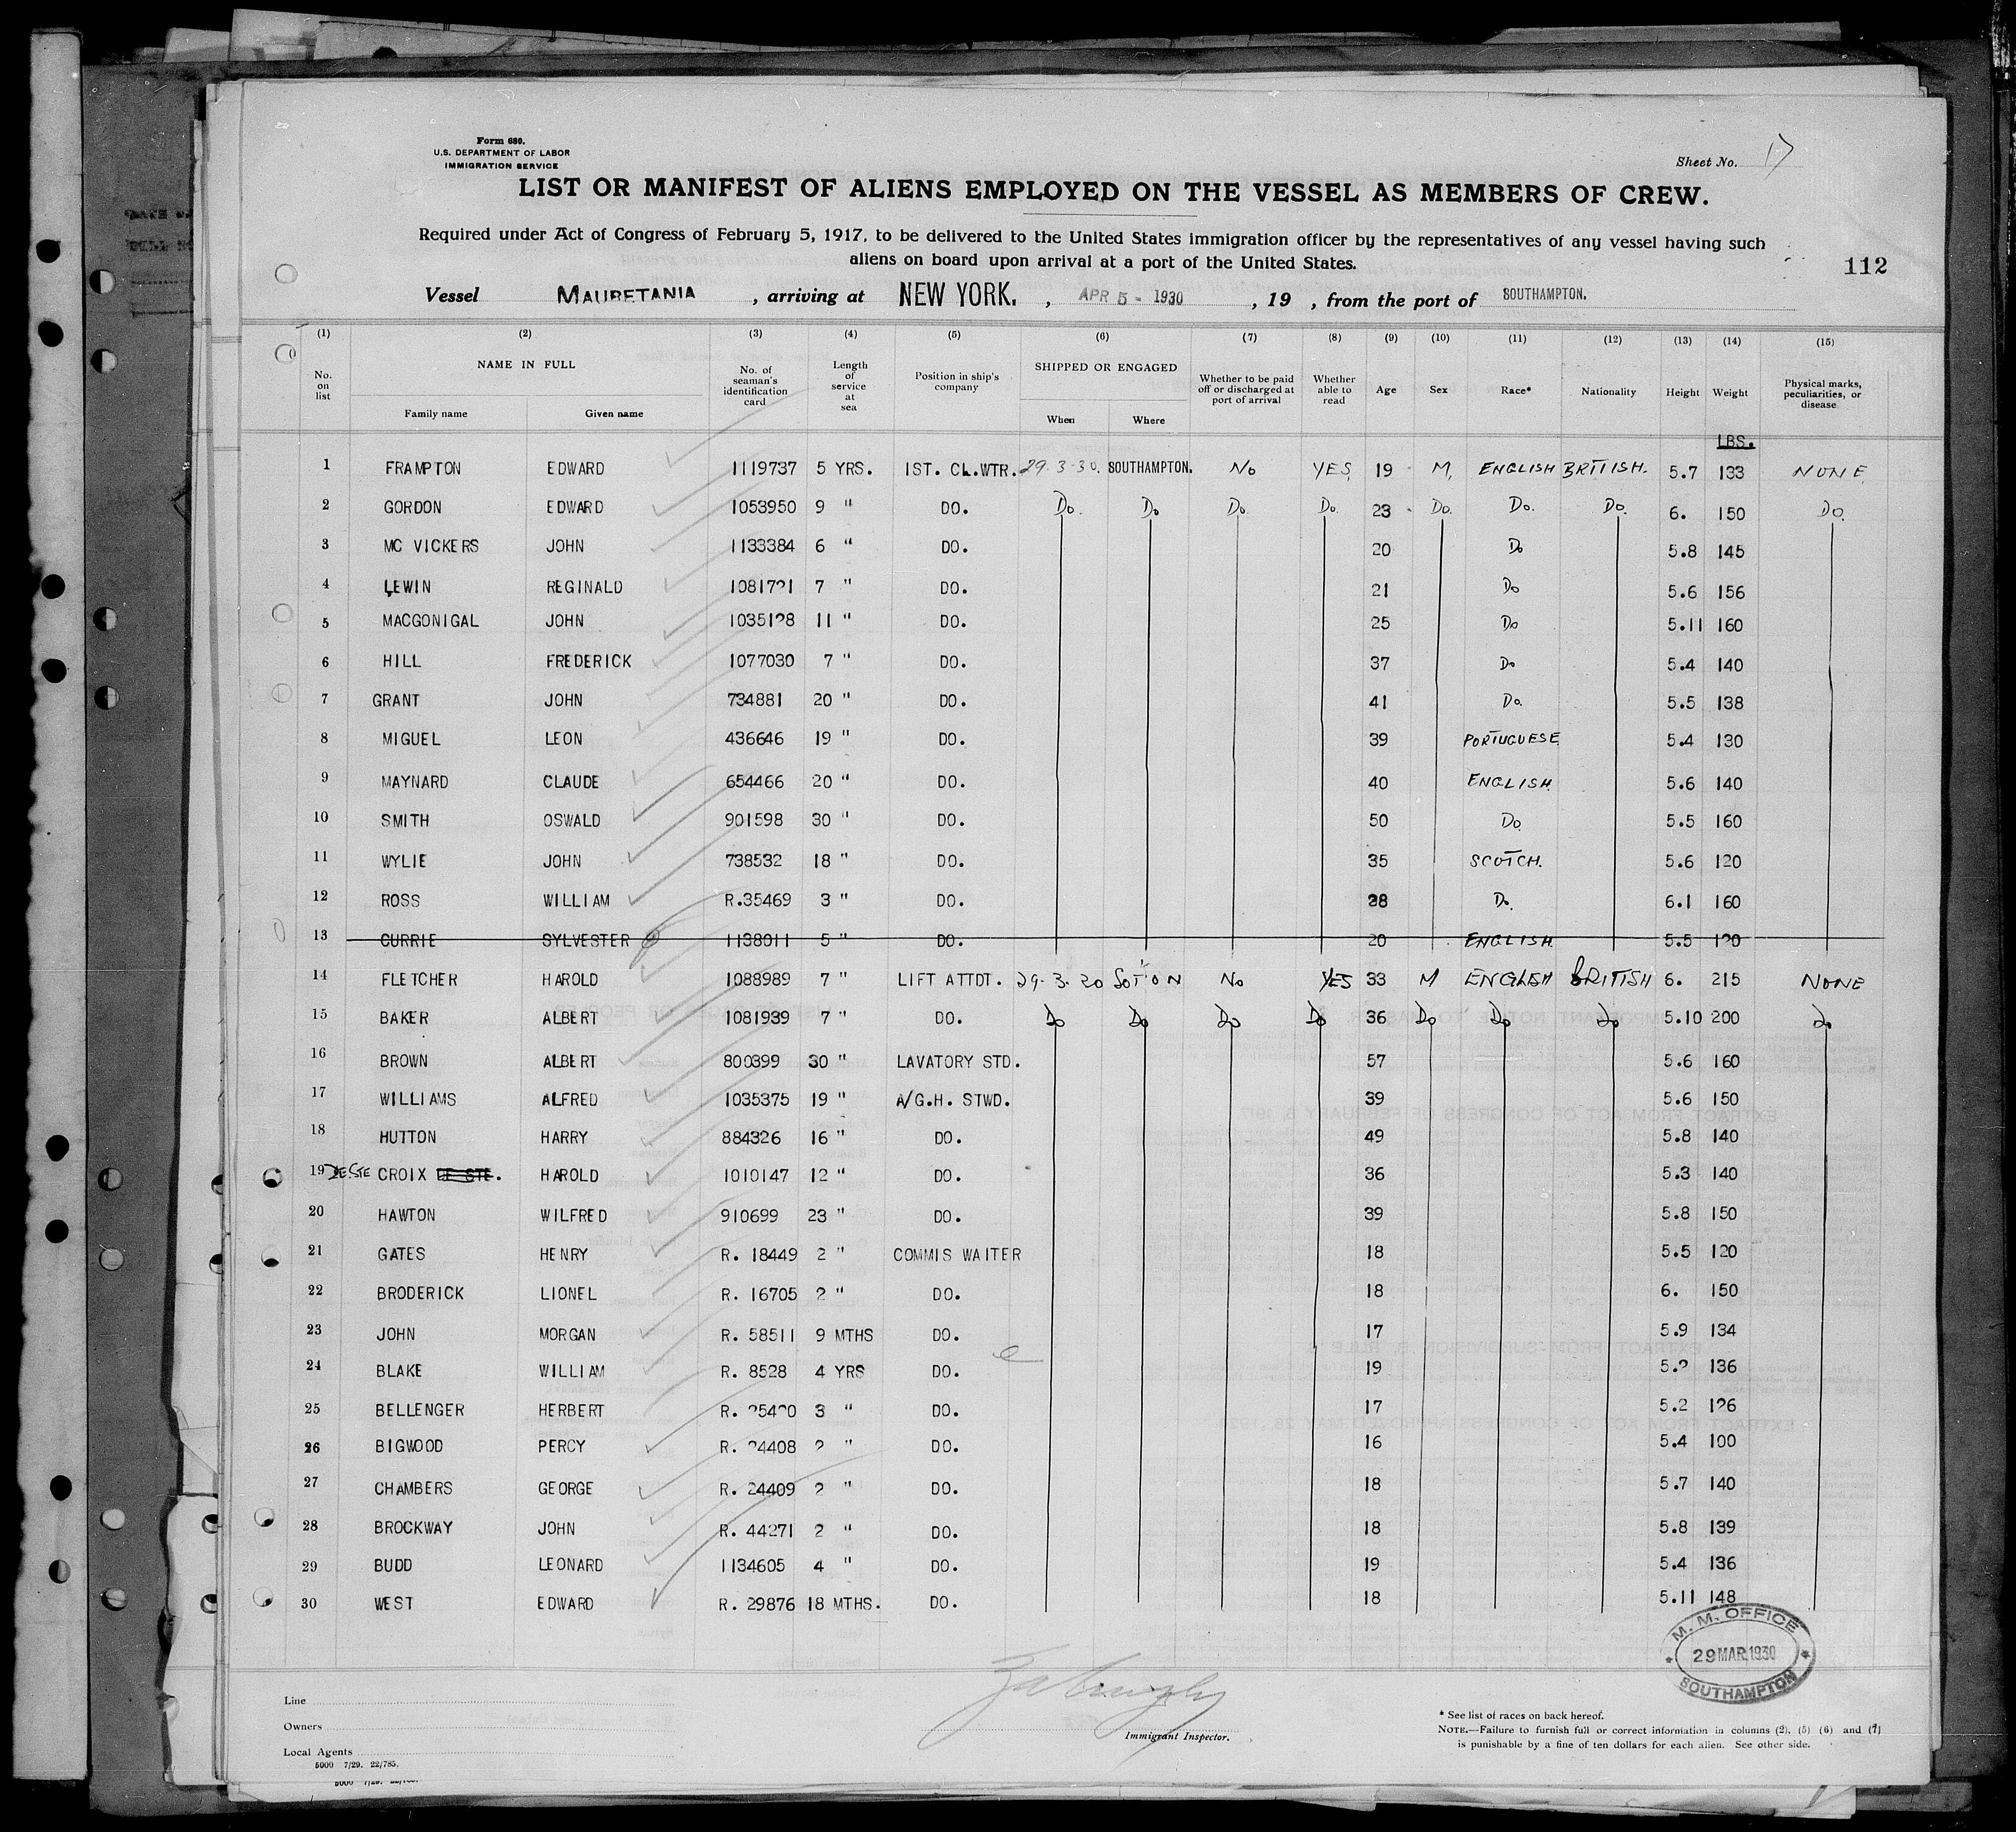 Form 680.
U.S. DEPARTMENT OF LABOR
IMMIGRATION SERVICE
Sheet No. 17
LIST OR MANIFEST OF ALIENS EMPLOYED ON THE VESSEL AS MEMBERS OF CREW.
Required under Act of Congress of February 5, 1917, to be delivered to the United States immigration officer by the representatives of any vessel having such
aliens on board upon arrival at a port of the United States.
112
Vessel MAURETANIA , arriving at NEW YORK. , APR 5 - 1930 , 19 , from the port of SOUTHAMPTON.
(1) (2) (3) (4) (5) (6) (7) (8) (9) (10) (11) (12) (13) (14) (15)
No. on list NAME IN FULL Family name Given name No. of seaman's identification card Length of service at sea Position in ship's company SHIPPED OR ENGAGED When Where Whether to be paid off or discharged at port of arrival Whether able to read Age Sex Race* Nationality Height Weight Physical marks, peculiarities, or disease
LBS.
1 FRAMPTON EDWARD 1119737 5 YRS. 1ST. CL.WTR. 29.3.30. SOUTHAMPTON. No YES 19 M, ENGLISH BRITISH. 5.7 133 NONE
2 GORDON EDWARD 1053950 9 " DO. Do. Do Do Do. 23 Do. Do. Do. 6. 150 Do.
3 MC VICKERS JOHN 1133384 6 " DO. 20 Do 5.8 145
4 LEWIN REGINALD 1081721 7 " DO. 21 Do 5.6 156
5 MACGONIGAL JOHN 1035128 11 " DO. 25 Do 5.11 160
6 HILL FREDERICK 1077030 7 " DO. 37 Do 5.4 140
7 GRANT JOHN 734881 20 " DO. 41 Do. 5.5 138
8 MIGUEL LEON 436646 19 " DO. 39 PORTUGUESE 5.4 130
9 MAYNARD CLAUDE 654466 20 " DO. 40 ENGLISH 5.6 140
10 SMITH OSWALD 901598 30 " DO. 50 Do 5.5 160
11 WYLIE JOHN 738532 18 " DO. 35 SCOTCH. 5.6 120
12 ROSS WILLIAM R.35469 3 " DO. 28 Do. 6.1 160
13 CURRIE SYLVESTER 1138011 5 " DO. 20 ENGLISH 5.5 120
14 FLETCHER HAROLD 1088989 7 " LIFT ATTDT. 29.3.30 SOTON No YES 33 M ENGLISH BRITISH 6. 215 NONE
15 BAKER ALBERT 1081939 7 " DO. Do Do Do Do 36 Do Do Do 5.10 200 Do
16 BROWN ALBERT 800399 30 " LAVATORY STD. 57 5.6 160
17 WILLIAMS ALFRED 1035375 19 " A/G.H. STWD. 39 5.6 150
18 HUTTON HARRY 884326 16 " DO. 49 5.8 140
19 DE STE CROIX DE STE. HAROLD 1010147 12 " DO. 36 5.3 140
20 HAWTON WILFRED 910699 23 " DO. 39 5.8 150
21 GATES HENRY R. 18449 2 " COMMIS WAITER 18 5.5 120
22 BRODERICK LIONEL R. 16705 2 " DO. 18 6. 150
23 JOHN MORGAN R. 58511 9 MTHS DO. 17 5.9 134
24 BLAKE WILLIAM R. 8528 4 YRS DO. 19 5.2 136
25 BELLENGER HERBERT R. 25420 3 " DO. 17 5.2 126
26 BIGWOOD PERCY R. 24408 2 " DO. 16 5.4 100
27 CHAMBERS GEORGE R. 24409 2 " DO. 18 5.7 140
28 BROCKWAY JOHN R. 44271 2 " DO. 18 5.8 139
29 BUDD LEONARD 1134605 4 " DO. 19 5.4 136
30 WEST EDWARD R. 29876 18 MTHS. DO. 18 5.11 148
M. M. OFFICE
* 29 MAR 1930 *
SOUTHAMPTON
Line
Owners
Local Agents
5000 7/29. 22/785.
Immigrant Inspector.
* See list of races on back hereof.
NOTE.—Failure to furnish full or correct information in columns (2), (5) (6) and (7)
is punishable by a fine of ten dollars for each alien. See other side.